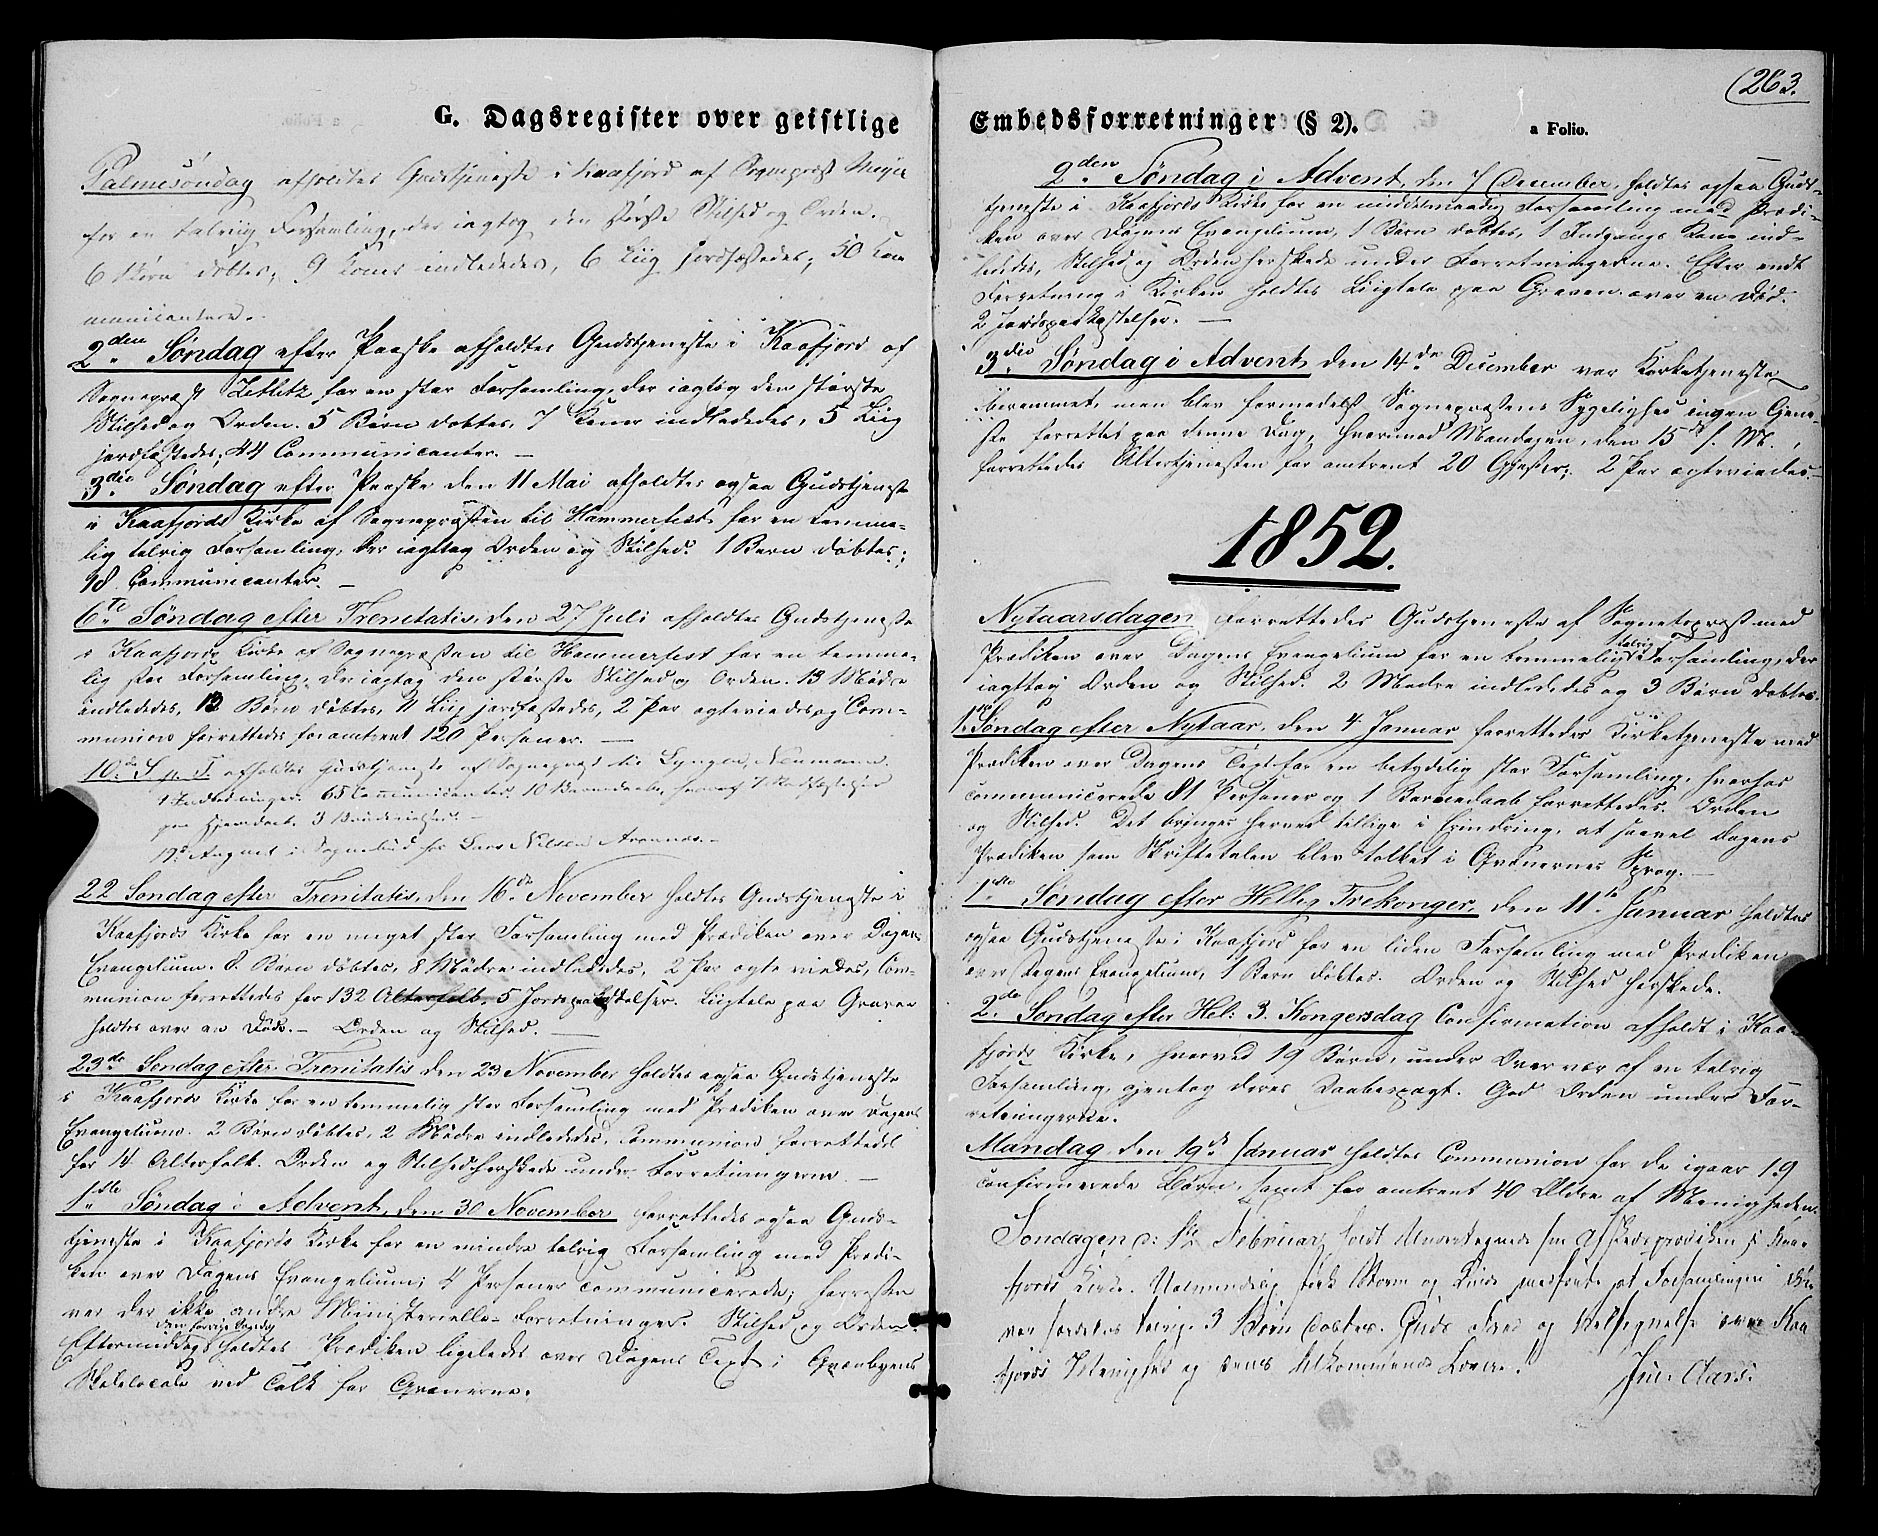 G. Dagsregister over geistlige
Palmesöndag afholdtes Gudstjeneste i Kaafjord af Sognepræst
for en talrig Forsamling, der iagtog den største Stilhed og Orden.
6 Børn døbtes; 9 Koner indlededes, 6 Liig jordfæstedes; 50 Com
municantere.
2den Søndag efter Paaske afholdtes Gudstjeneste i Kaafjord af
Sognepræst Zetlitz for en stor Forsamling, der iagtog den største
Stilhed og Orden. 5 Børn døbtes, 7 Koner indlededes, 5 Liig
jordfæstedes; 44 Communicanter. —
3die Søndag efter Paaske den 11 Mai afholdtes ogsaa Gudstjeneste
i Kaafjords Kirke af Sognepræsten til Hammerfest for en temme-
lig talrig Forsamling, der iagtog Orden og Stilhed. 1 Barn døbtes;
18 Communicanter. —
6te Søndag efter Trenitatis, den 27 Juli afholdtes Gudstjeneste
i Kaafjords Kirke af Sognepræsten til Hammerfest for en temme-
lig stor Forsamling, der iagtog den største Stilhed og Orden. 13 Mødre
indlededes, 13 Børn døbtes, 11 Liig jordfæstedes, 2 Par ægteviedes og Com-
munion forrettedes for omtrent 120 Personer. —
10de S. p. T. afholdtes Gudstjeneste af Sognepræst til Lyngen, Neumann.
65 Communicanter. 10 Barnedaab, heraf 7
paa Hjemdøbt. 3
19de August i Sognebud for Lars Nilsen
22 Søndag efter Trenitatis, den 16de November holdtes Gudstjeneste i
Kaafjords Kirke for en meget stor Forsamling med Prædiken over Dagens
Evangelium. 8 Børn døbtes, 8 Mødre indlededes, 2 Par ægteviedes, Com-
munion forrettedes for 132 Alterfolk. 5 Jordspaakastelser. Liigtale paa Graven
holdtes over en Død. — Orden og Stilhed. —
23de Søndag efter Trenitatis den 23 November holdtes ogsaa Gudstjeneste
i Kaafjords Kirke for en temmelig stor Forsamling med Prædiken over Dagens
Evangelium. 2 Børn døbtes, 2 Mødre indlededes, Communion forrettedes
for 14 Alterfolk. Orden og Stilhed herskede under Forretningerne. —
1ste Søndag i Advent, den 30 November forrettedes ogsaa Guds-
tjeneste i Kaafjords Kirke for en mindre talrig Forsamling med Prædi-
ken over Dagens Evangelium; 4 Personer communicerede; forresten
var der ikke andre Ministerielle-Forretninger. Stilhed og Orden.
den forrige Søndag
Eftermiddags holdtes Prædiken ligeledes over Dagens Text i Qvænbyens
Skolelocale ved Tolk for Qvænerne.
263.
Embedsforretninger (§ 2).
a Folio.
2den Søndag i Advent, den 7 December, holdtes ogsaa Guds-
tjeneste i Kaafjords Kirke for en middelmaadig Forsamling med Prædi-
ken over Dagens Evangelium, 1 Barn døbtes, 1 Indgangs Kone ind-
lededes, Stilhed og Orden herskede under Forretningerne. Efter endt
Forretning i Kirken holdtes Liigtale paa Graven over en Død.
2 Jordspaakastelser. —
3die Søndag i Advent den 14de December var Kirketjeneste
berammet, men blev formedelst Sognepræstens Sygelighed ingen Tjene-
ste forrettet paa denne Dag, hvorimod Mandagen, den 15de s. M.,
forrettedes Altertjenesten for omtrent 20 Gjæster; 2 Par ægteviedes. —
1852.
Nytaarsdagen forrettedes Gudstjeneste af Sognepræst med
Prædiken over Dagens Evangelium for en temmelig talrig Forsamling, der
iagttog Orden og Stilhed. 2 Mødre indlededes og 3 Børn døbtes.
1. Søndag efter Nytaar, den 4 Januar forrettedes Kirketjeneste med
Prædiken over Dagens Text for en betydelig stor Forsamling, hvorhos
communicerede 81 Personer og 1 Barnedaab forrettedes. Orden
og Stilhed. Det bringes herved tillige i Erindring, at saavel Dagens
Prædiken som Skriftetalen blev tolket i Qvænernes Sprog. —
1ste Søndag efter Hellig Trekonger, den 11te Januar holdtes
ogsaa Gudstjeneste i Kaafjord for en liden Forsamling med Prædiken
over Dagens Evangelium, 1 Barn døbtes. Orden og Stilhed herskede.
2de Søndag efter Hel: 3. Kongersdag Confirmation afholdt i Kaa-
fjords Kirke, hvorved 19 Børn, under Overvær af en talrig
Forsamling, gjentog deres Daabespagt. God Orden under For-
retningerne.
Mandag, den 19de Januar holdtes Communion for de igaar 19
confirmerede Børn, samt for omtrent 40 Ældre af Menigheden.
Søndagen Februar holdt Undertegnede sin Afskedsprædiken i Kaa-
fjords Kirke. stærk Storm og Kulde Forsamlingen
var talrig. 3 Børn døbtes. Guds og Velsignelse over Kaa
fjords Menighed og dens
Aars.